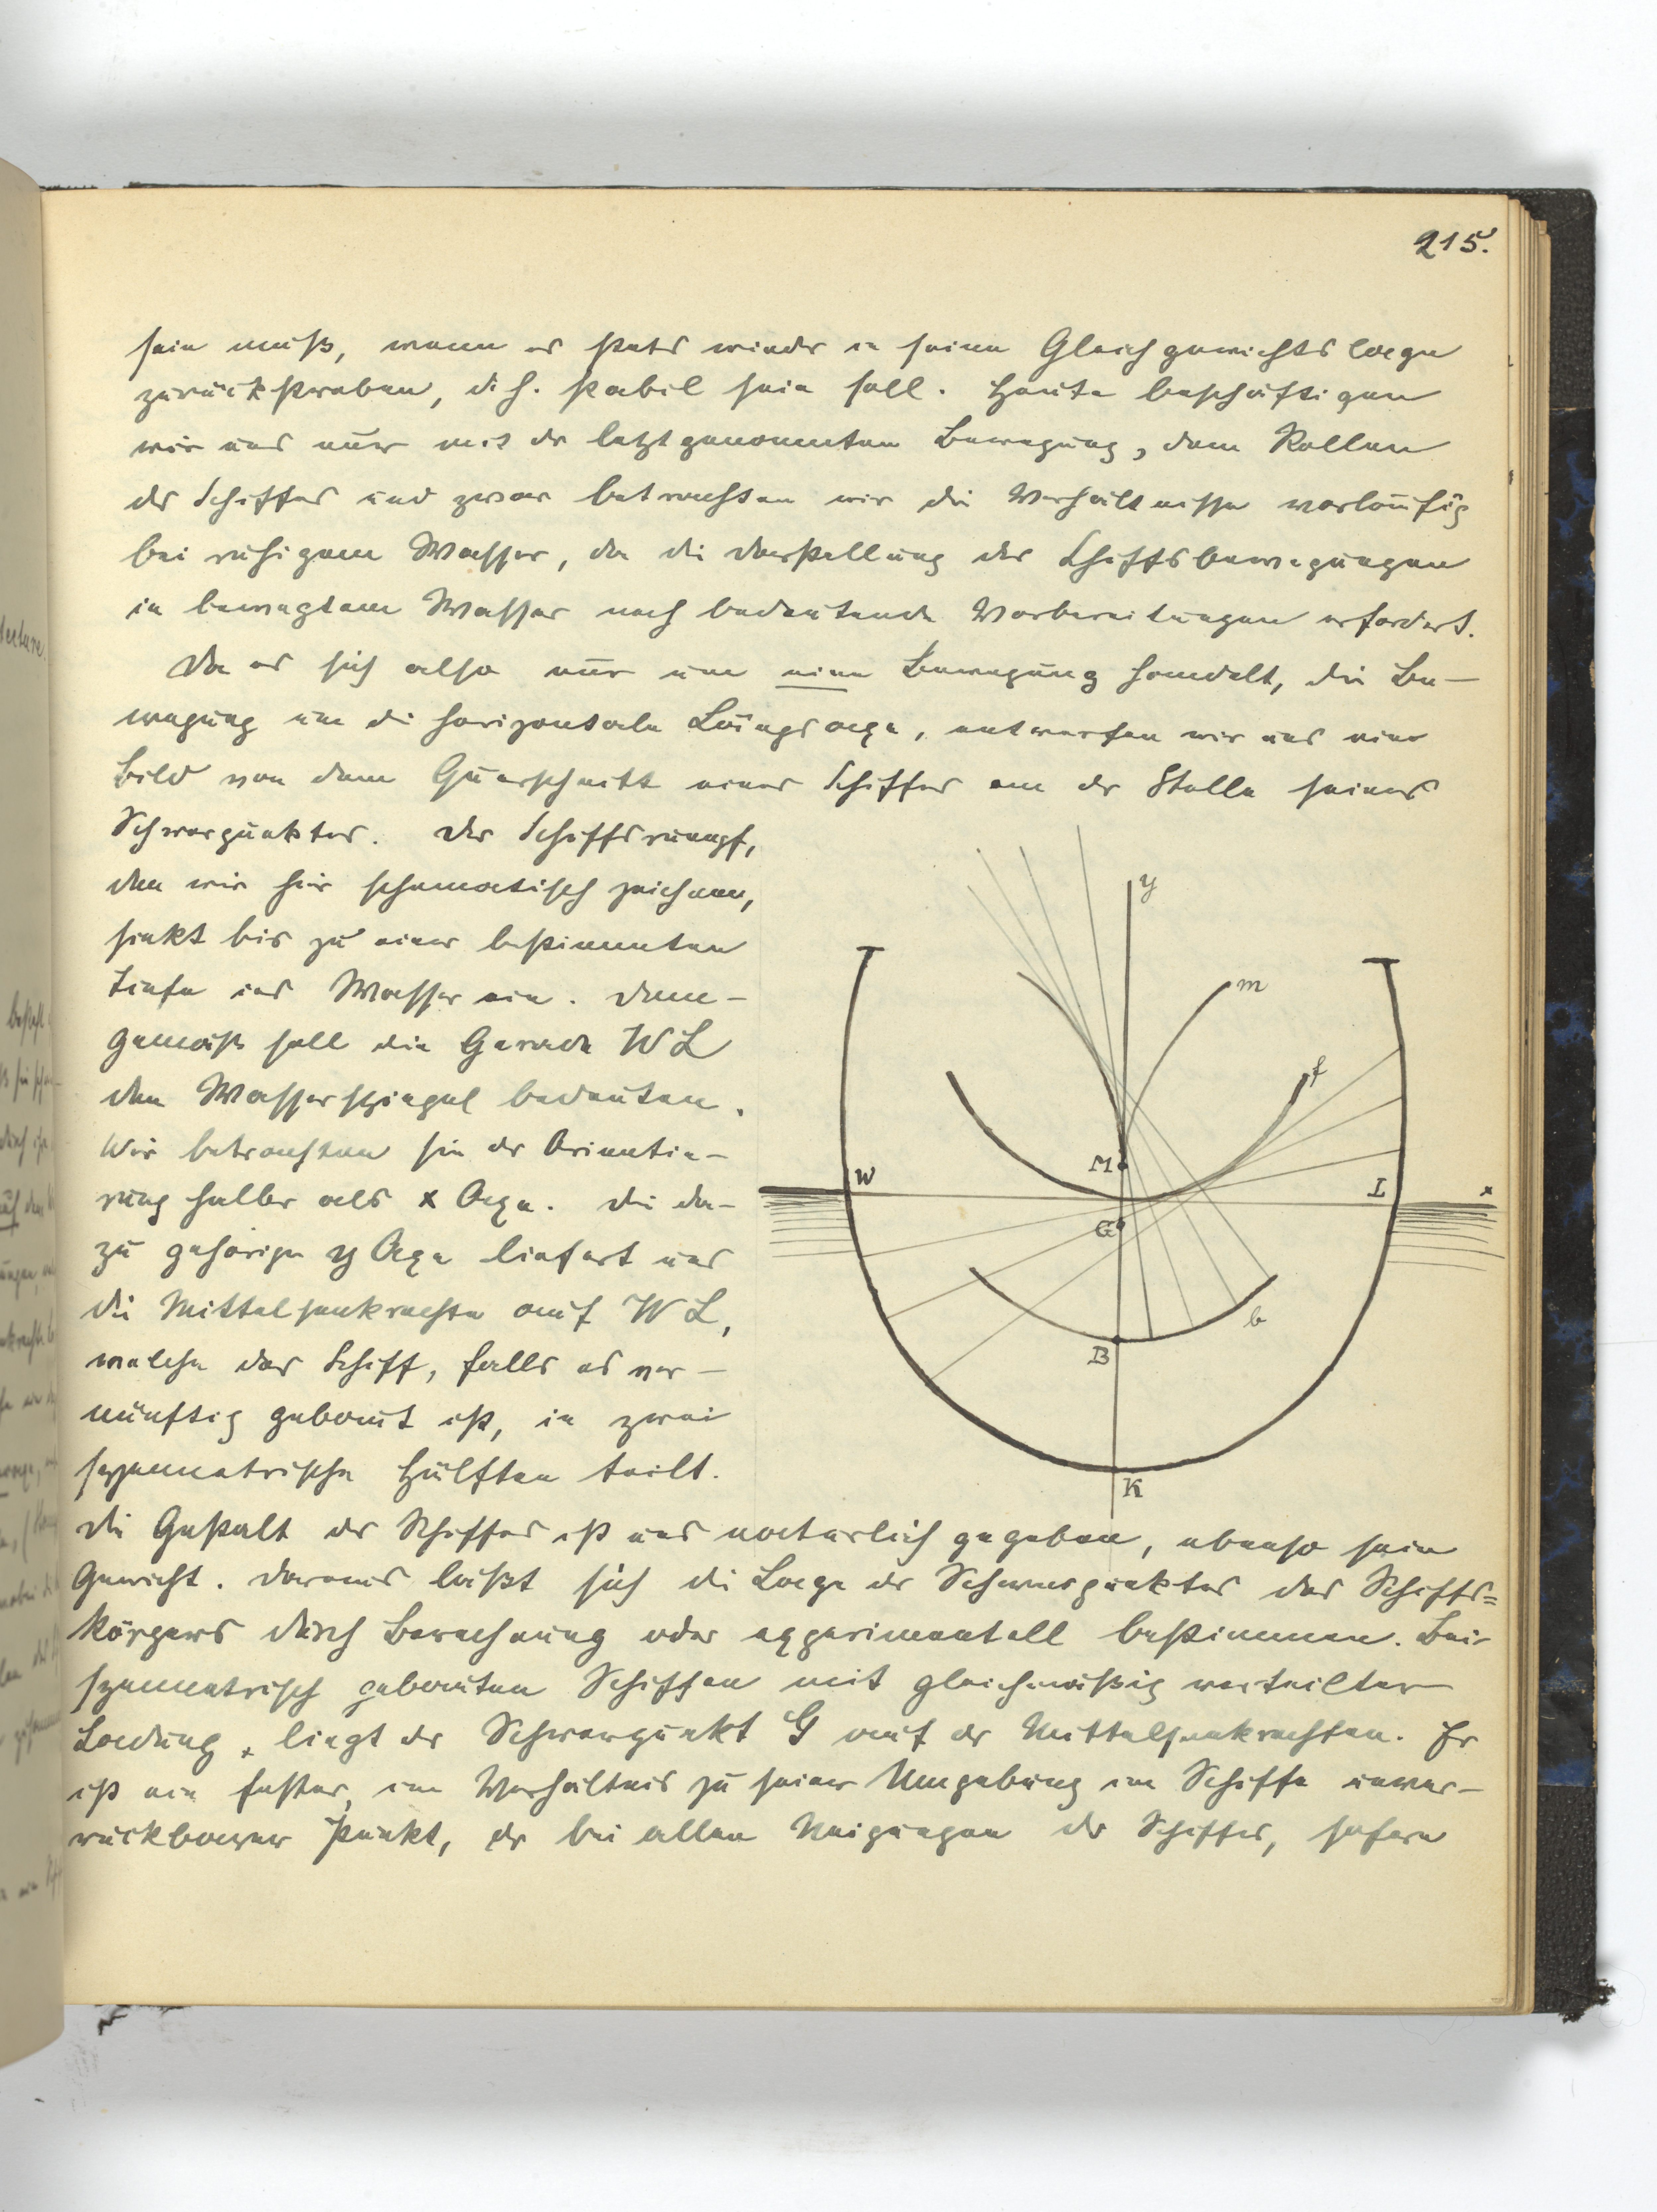 215.
sein muß, wenn es stets wieder in seine Gleichgewichtslage
zurückstreben, d. h. stabil sein soll. Heute beschäftigen
wir uns nur mit der letztgenannten Bewegung, dem Rollen
des Schiffes und zwar betrachten wir die Verhältnisse vorläufig
bei ruhigem Wasser, da die Darstellung der Schiffsbewegungen
in bewegtem Wasser noch bedeutende Vorbereitungen erfordert.
Da es sich also nur um eine Bewegung handelt, die Be-
wegung um die horizontale Längsaxe, entwerfen wir uns ein
Bild von dem Querschnitt eines Schiffes an der Stelle seines
Schwerpunktes. Der Schiffsrumpf,
den wir hier schematisch zeichnen,
sinkt bis zu einer bestimmten
Tiefe ins Wasser ein. Dem-
gemäß soll die Gerade WL
den Wasserspiegel bedeuten.
Wir betrachten sie der Orientie-
rung halber als x Axe. Die da-
zu gehörige y Axe liefert uns
die Mittelsenkrechte auf WL,
welche das Schiff, falls es ver-
nünftig gebaut ist, in zwei
symmetrische Hälften teilt.
Die Gestalt des Schiffes ist uns natürlich gegeben, ebenso sein
Gewicht. Daraus läßt sich die Lage des Schwerpunktes des Schiffs=
körpers durch Berechnung oder experimentell bestimmen. Bei
symmetrisch gebauten Schiffen mit gleichmäßig verteilter
Ladung, liegt der Schwerpunkt G auf der Mittelsenkrechten. Er
ist ein fester, im Verhältnis zu seiner Umgebung im Schiffe unver-
rückbarer Punkt, der bei allen Neigungen des Schiffes, sofern
y
m
f
M
W
L
x
G
b
B
K